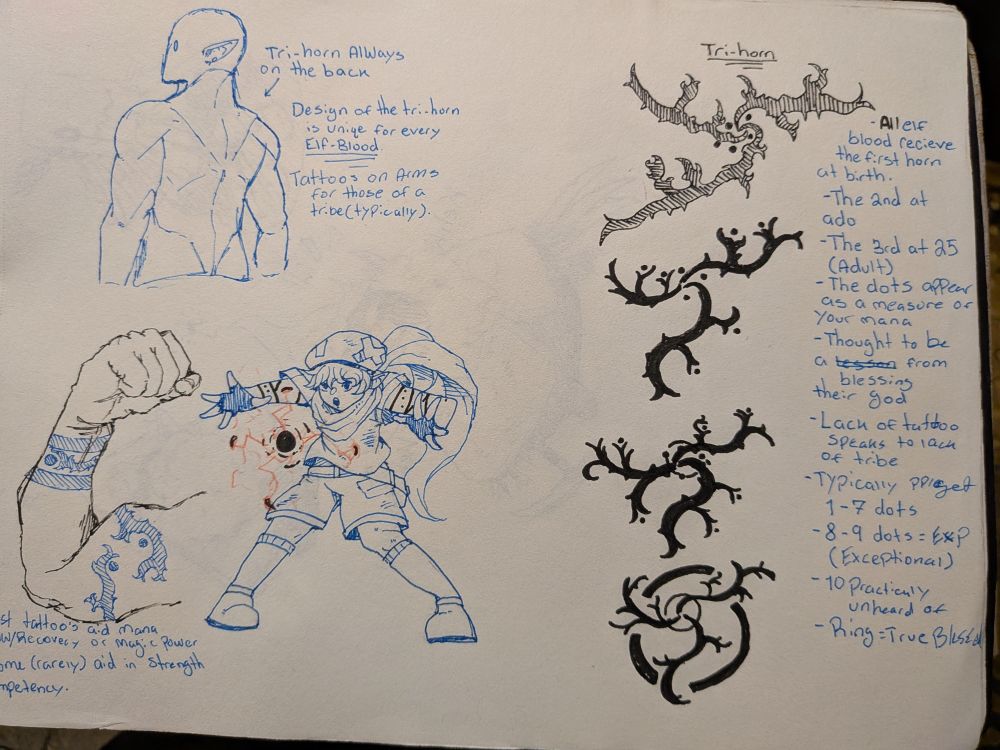 Tri-horn Always
on the back
Design of the tri-horn
is uniqe for every
Elf-Blood
Tattoos on Arms
for those of a
tribe (typically).
st tattoo's aid mana
w/Recovery or magic Power
me (rarely) aid in Strength
mpetency.
Tri-horn
- All elf
blood recieve
the first horn
at birth.
- The 2nd at
ado
- The 3rd at 25
(Adult)
- The dots appear
as a measure of
your mana
- Thought to be
a lesson from
blessing
their god
- Lack of tattoo
speaks to lack
of tribe
- Typically ppl get
1-7 dots
- 8-9 dots = Exp
(Exceptional)
- 10 Practically
unheard of
- Ring = True Blessed